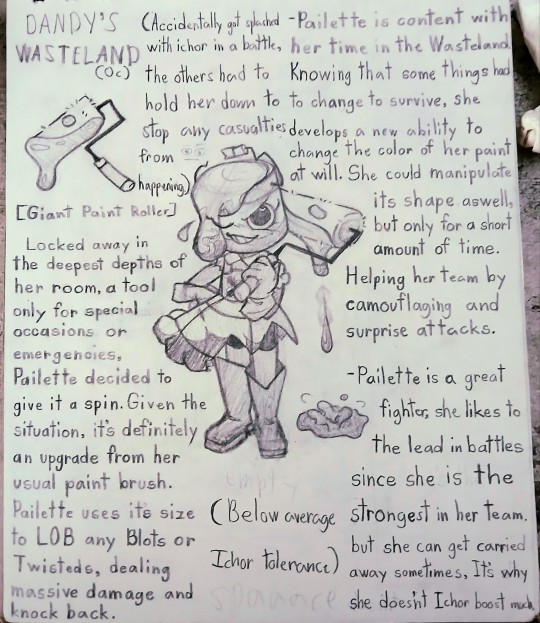 DANDY'S
WASTELAND
(OC)
[Giant Paint Roller]
Locked away in
the deepest depths of
her room, a tool
only for special
occasions or
emergencies,
Pailette decided to
give it a spin. Given the
situation, it's definitely
an upgrade from her
usual paint brush.
Pailette uses it's size
to LOB any Blots or
Twisteds, dealing
massive damage and
knock back.
(Accidentally got splashed
with ichor in a battle,
the others had to
hold her down to
stop any casualties
from
happening.)
(Below average
Ichor tolerance)
-Pailette is content with
her time in the Wasteland.
Knowing that some things had
to change to survive, she
develops a new ability to
change the color of her paint
at will. She could manipulate
its shape aswell,
but only for a short
amount of time.
Helping her team by
camouflaging and
surprise attacks.
-Pailette is a great
fighter, she likes to
the lead in battles
since she is the
strongest in her team.
but she can get carried
away sometimes, It's why
she does'nt Ichor boost much.